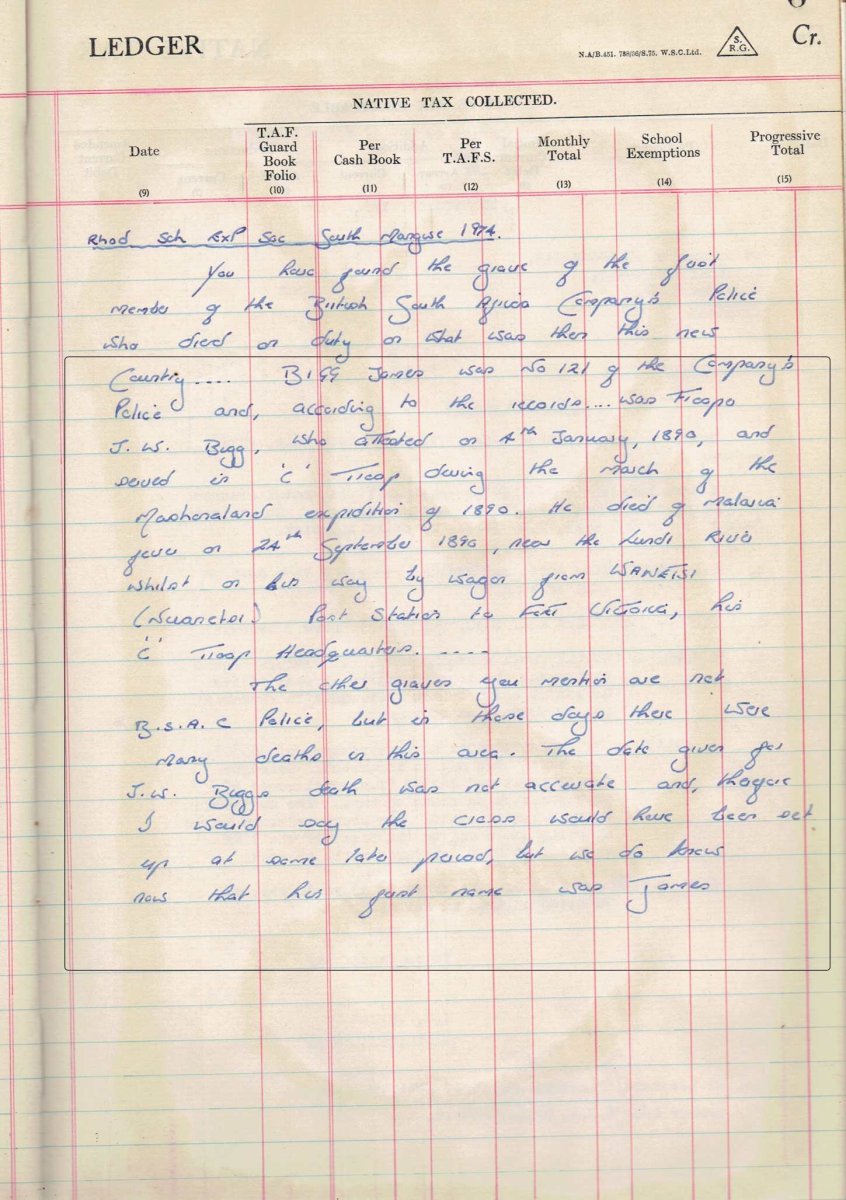 LEDGER
N.A/B.451. 788/56/S.75. W.S.C.Ltd.
S.
R.G.
Cr.
NATIVE TAX COLLECTED.
Date
(9)
T.A.F.
Guard
Book
Folio
(10)
Per
Cash Book
(11)
Per
T.A.F.S.
(12)
Monthly
Total
(13)
School
Exemptions
(14)
Progressive
Total
(15)
Rhod Sch Exp Soc South 1974.
You have found the grave of the first
member of the British South Africa Company's Police
who died on duty on what was then this new
Country.... BIGG James was No 121 of the Company's
Police and, according to the records.... was
J. W. Bigg, who attested on 4th January, 1890, and
served in 'C' Troop during the march of the
Mashonaland expidition of 1890. He died of Malaria
fever on 24th September 1890, near the Lundi River
whilst on his way by wagon from WANETSI
(Nuanetsi) Post Station to FORT VICTORIA, his
'C' Troop Headquarters. ----
The other graves you mention are not
B.S.A.C Police, but in those days there were
many deaths in this area. The date given for
J.W. Biggs death was not accurate and, therefore
I would say the cross would have been set
up at some later period, but we do know
now that his first name was James